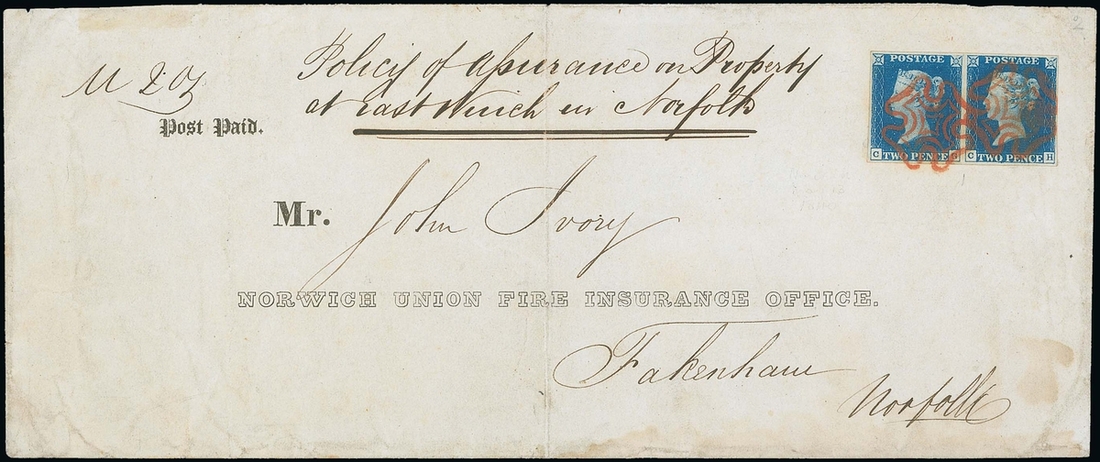 Policy of Assurance on Property
at East Winch in Norfolk
Post Paid.
Mr. John Ivory
NORWICH UNION FIRE INSURANCE OFFICE.
Fakenham
Norfolk
POSTAGE
TWO PENCE
C
POSTAGE
TWO PENCE
C H